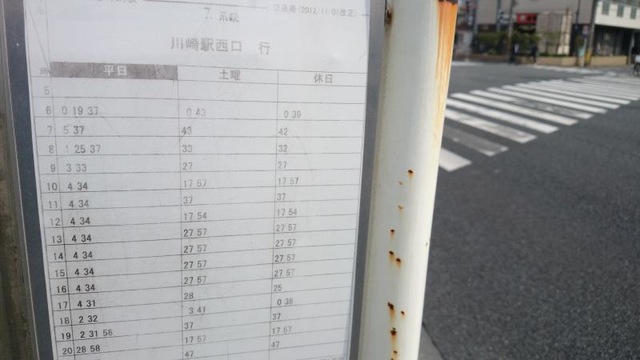 (2012.11.01改正)
川崎駅西口 行
平日 土曜 休日
5
6 0 19 37 0 43 0 39
7 5 37 43 42
8 1 25 37 33 32
9 3 33 27 27
10 4 34 17 57 17 57
11 4 34 37 37
12 4 34 17 54 17 54
13 4 34 27 57 27 57
14 4 34 27 57 27 57
15 4 34 27 57 27 57
16 4 34 27 57 27 57
17 4 31 28 25
18 2 32 3 41 0 38
19 2 31 58 37 37
20 28 58 17 57 17 57
47 47